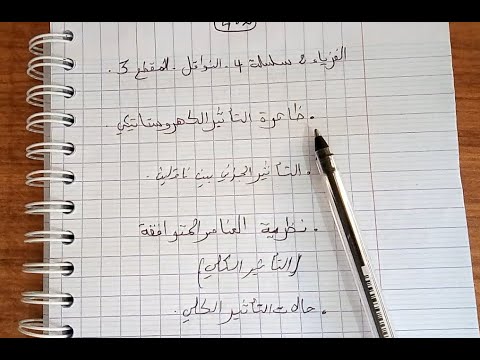 الفزياء 2 سلسلة 4. النواقل. المقطع 3.
. ظاهرة التأثير الكهروستاتيكي.
. التأثير الجزئي بين ناقلين.
. نظرية العناصر المتوافقة
(التأثير الكلي)
. حالات التأثير الكلي.